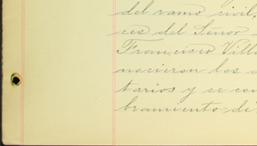 del ramo civil,
ces del Señor
Francisco Villa
narieron los
tarios y se con
bramiento di